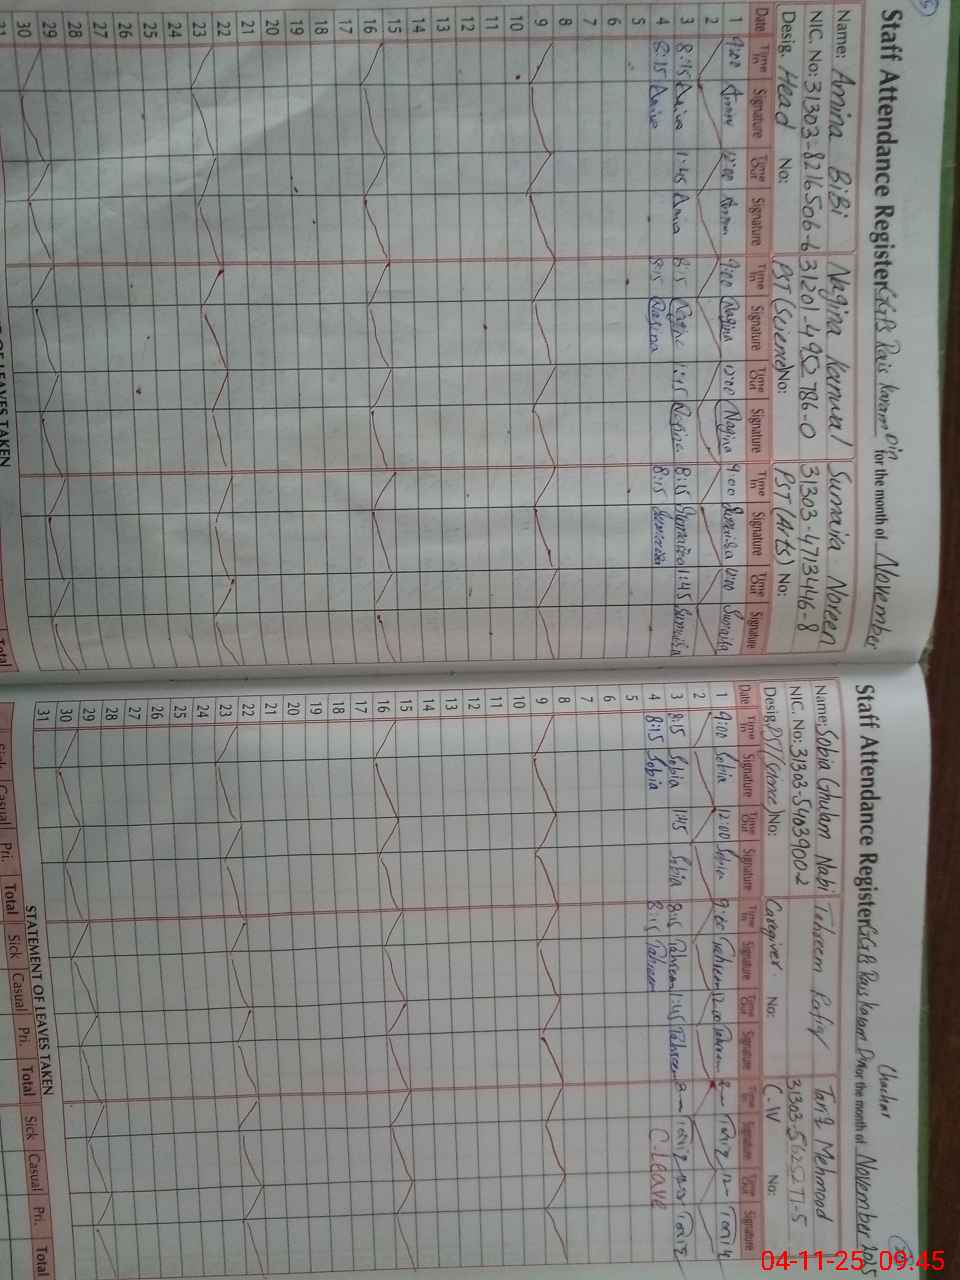 Staff Attendance Register GGPS Rais Karam Din for the month of November
Name: Amina BiBi Nagina Kanwal Sumaira Noreen
NIC. No: 31303-8216506-6 31201-4952786-0 31303-4713446-8
Desig. Head No: PST (Science) No: PST (Arts) No:
Date Time In Signature Time Out Signature Time In Signature Time Out Signature Time In Signature Time Out Signature
1 9:00 Amina 12:00 Amina 9:00 Nagina 12:00 Nagina 9:00 Sumaira 12:00 Sumaira
2
3 8:15 Amina 1:45 Amina 8:15 Nagina 1:45 Nagina 8:15 Sumaira 1:45 Sumaira
4 8:15 Amina 8:15 Nagina 8:15 Sumaira
5
6
7
8
9
10
11
12
13
14
15
16
17
18
19
20
21
22
23
24
25
26
27
28
29
30
31
OF LEAVES TAKEN
Total
Chachar
Staff Attendance Register GGPS Rais Karam Din for the month of November 2025
Name: Sobia Ghulam Nabi Tahreem Rafiq Tariq Mehmood
NIC. No: 31303-54039002 31303-5625271-5
Desig. PST (Science) No: Caregiver. No: C.IV No:
Date Time In Signature Time Out Signature Time In Signature Time Out Signature Time In Signature Time Out Signature
1 9:00 Sobia 12:00 Sobia 9:00 Tahreem 12:00 Tahreem Tariq Tariq
2
3 8:15 Sobia 1:45 Sobia 8:15 Tahreem 1:45 Tahreem Tariq Tariq
4 8:15 Sobia 8:15 Tahreem C.Leave
5
6
7
8
9
10
11
12
13
14
15
16
17
18
19
20
21
22
23
24
25
26
27
28
29
30
31
STATEMENT OF LEAVES TAKEN
Sick Casual Pri. Total Sick Casual Pri. Total Sick Casual Pri. Total
04-11-25 09:45